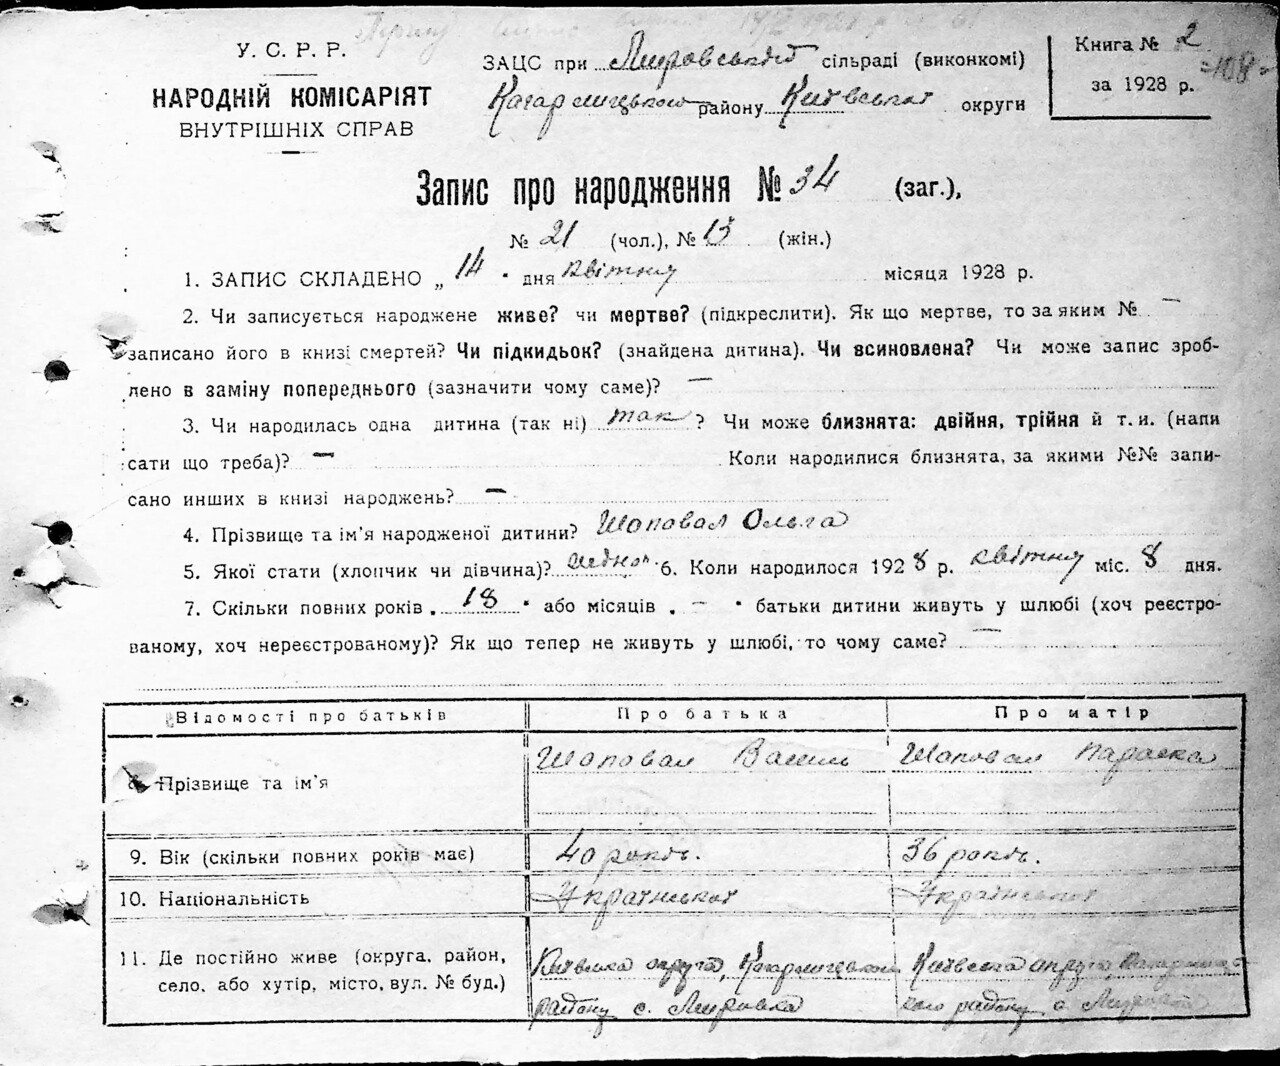 У. С. Р. Р.
НАРОДНІЙ КОМІСАРІЯТ
ВНУТРІШНІХ СПРАВ
ЗАЦС при Мировський сільраді (виконкомі)
Кагарлицького району Київської округи
Книга № 2
=108=
за 1928 р.
Запис про народження № 34 (заг.),
№ 21 (чол.), № 13 (жін.)
1. ЗАПИС СКЛАДЕНО „ 14 " дня квітня місяця 1928 р.
2. Чи записується народжене живе? чи мертве? (підкреслити). Як що мертве, то за яким № —
записано його в книзі смертей? Чи підкидьок? (знайдена дитина). Чи всиновлена? Чи може запис зроб-
лено в заміну попереднього (зазначити чому саме)? —
3. Чи народилась одна дитина (так ні) так ? Чи може близнята: двійня, трійня й т. и. (напи
сати що треба)? — Коли народилися близнята, за якими №№ запи-
сано инших в книзі народжень? —
4. Прізвище та ім'я народженої дитини? Шаповал Ольга
5. Якої стати (хлопчик чи дівчина)? 6. Коли народилося 1928 р. квітня міс. 8 дня.
7. Скільки повних років „ 18 " або місяців „ — " батьки дитини живуть у шлюбі (хоч реєстро-
ваному, хоч нереєстрованому)? Як що тепер не живуть у шлюбі, то чому саме? —
Відомості про батьків Про батька Про матір
8. Прізвище та ім'я Шаповал Василь Шаповал Параска
9. Вік (скільки повних років має) 40 років. 36 років.
10. Національність Української Української
11. Де постійно живе (округа, район, село, або хутір, місто, вул. № буд.)
Київська округа, Кагарлицького
району с. Мировка
Київська округа, Кагарлиць-
кого району с Мировка